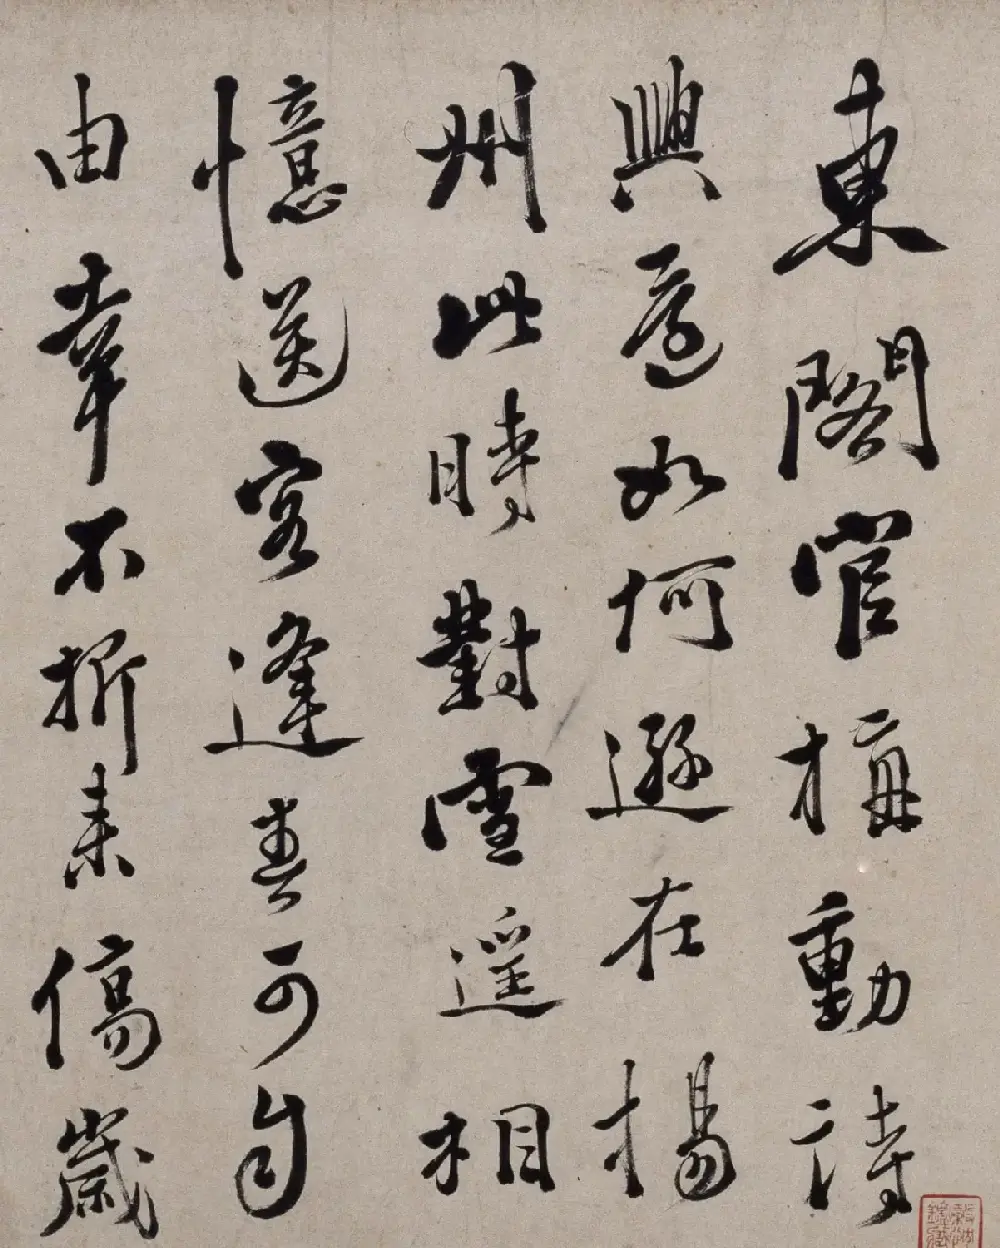 東閣官梅動詩
興還如何遜在揚
州此時對雪遥相
憶送客逢春可自
由幸不折来傷歲